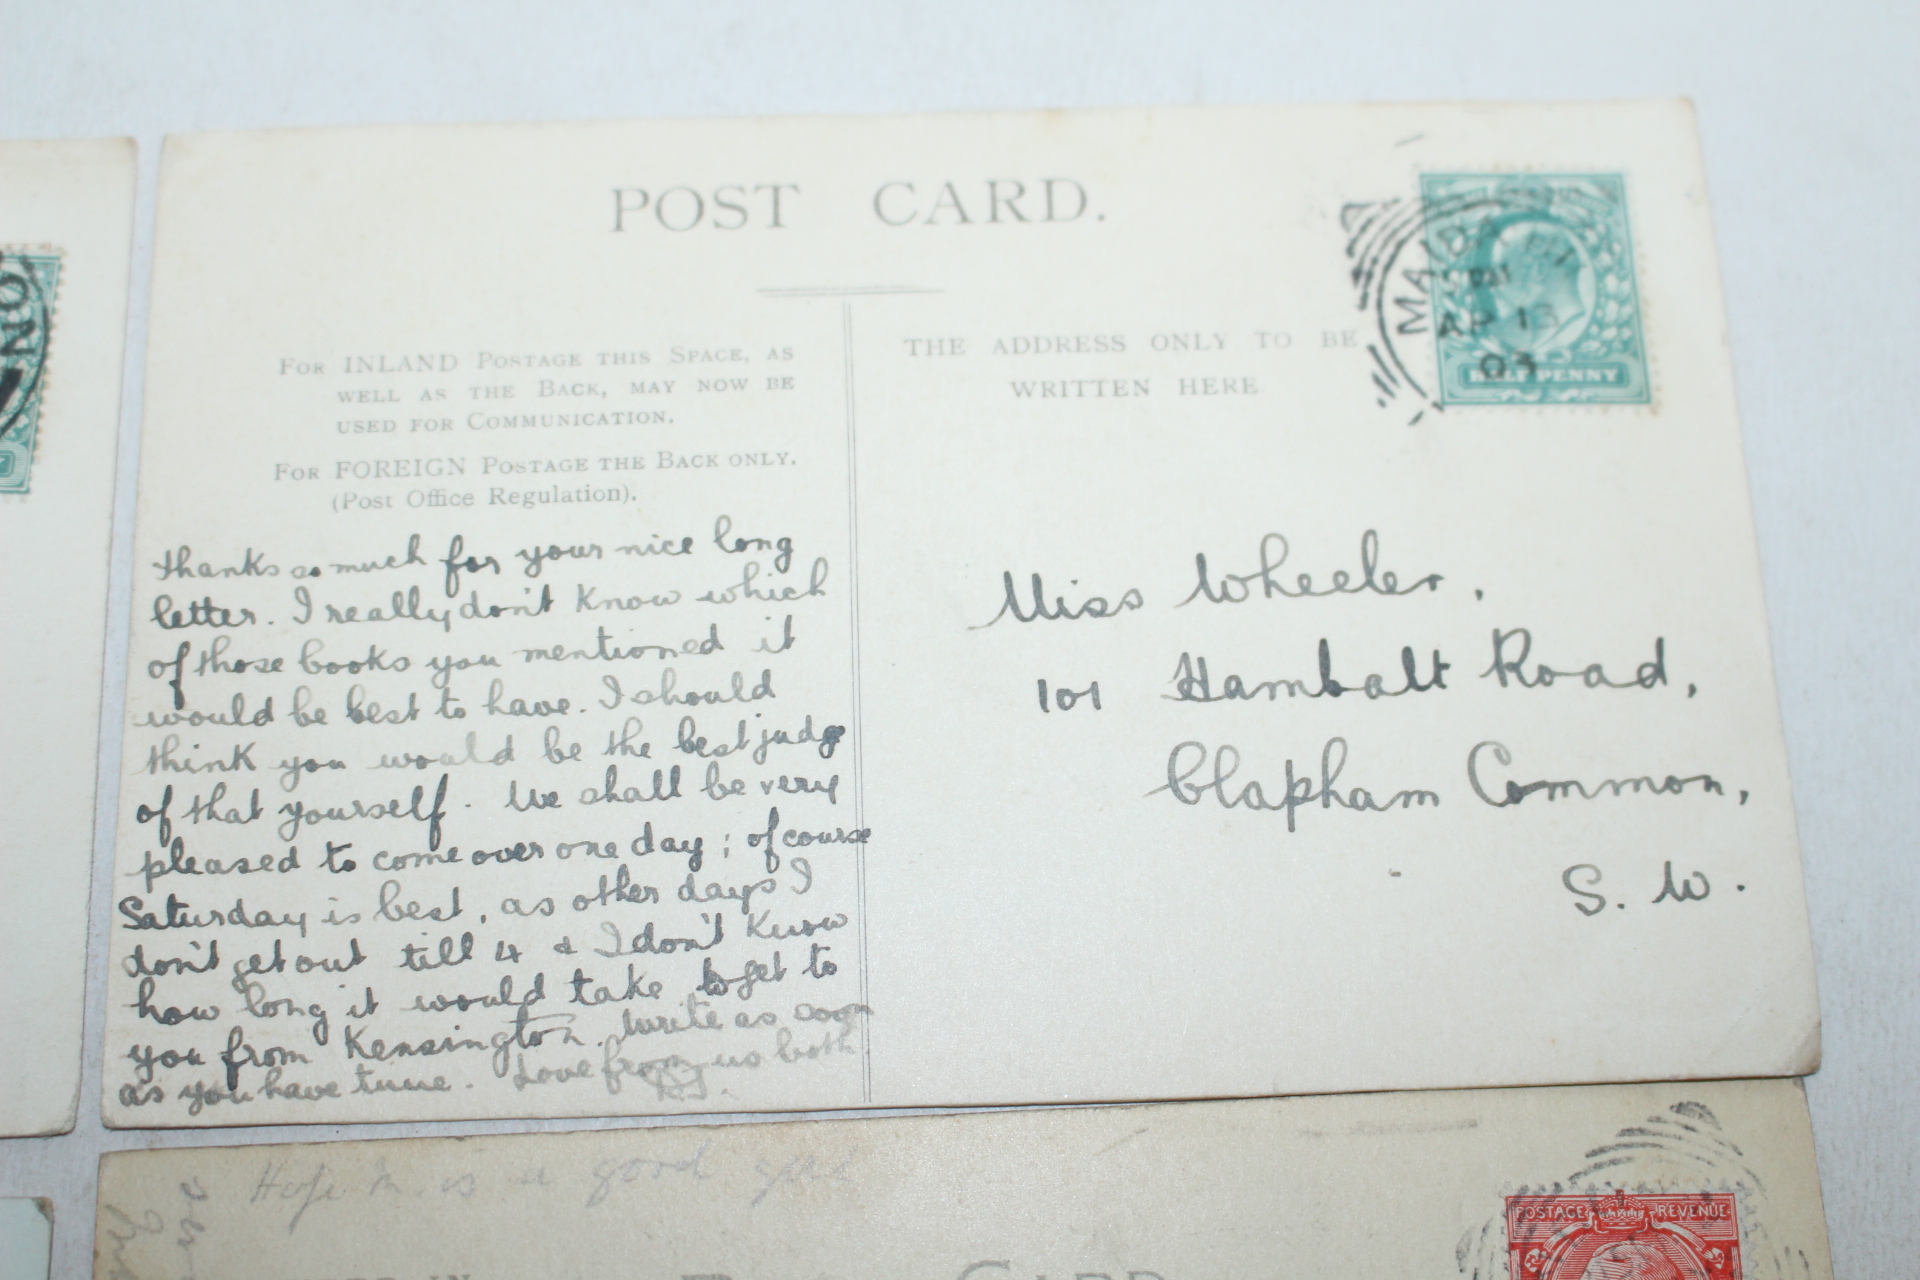 POST CARD.
FOR INLAND POSTAGE THIS SPACE, AS
WELL AS THE BACK, MAY NOW BE
USED FOR COMMUNICATION.
FOR FOREIGN POSTAGE THE BACK ONLY.
(Post Office Regulation).
thanks so much for your nice long
letter. I really don't know which
of those books you mentioned it
would be best to have. I should
think you would be the best judge
of that yourself. We shall be very
pleased to come over one day; of course
Saturday is best, as other days I
don't get out till 4 & I don't know
how long it would take to get to
you from Kensington. Write as soon
as you have time. Love from us both.
THE ADDRESS ONLY TO BE
WRITTEN HERE
MAIDA
PM
AP 13
03
HALF PENNY
Miss Wheeler,
101 Hambalt Road,
Clapham Common,
S. W.
NO
Hope M. is a good
POSTAGE REVENUE
CARD